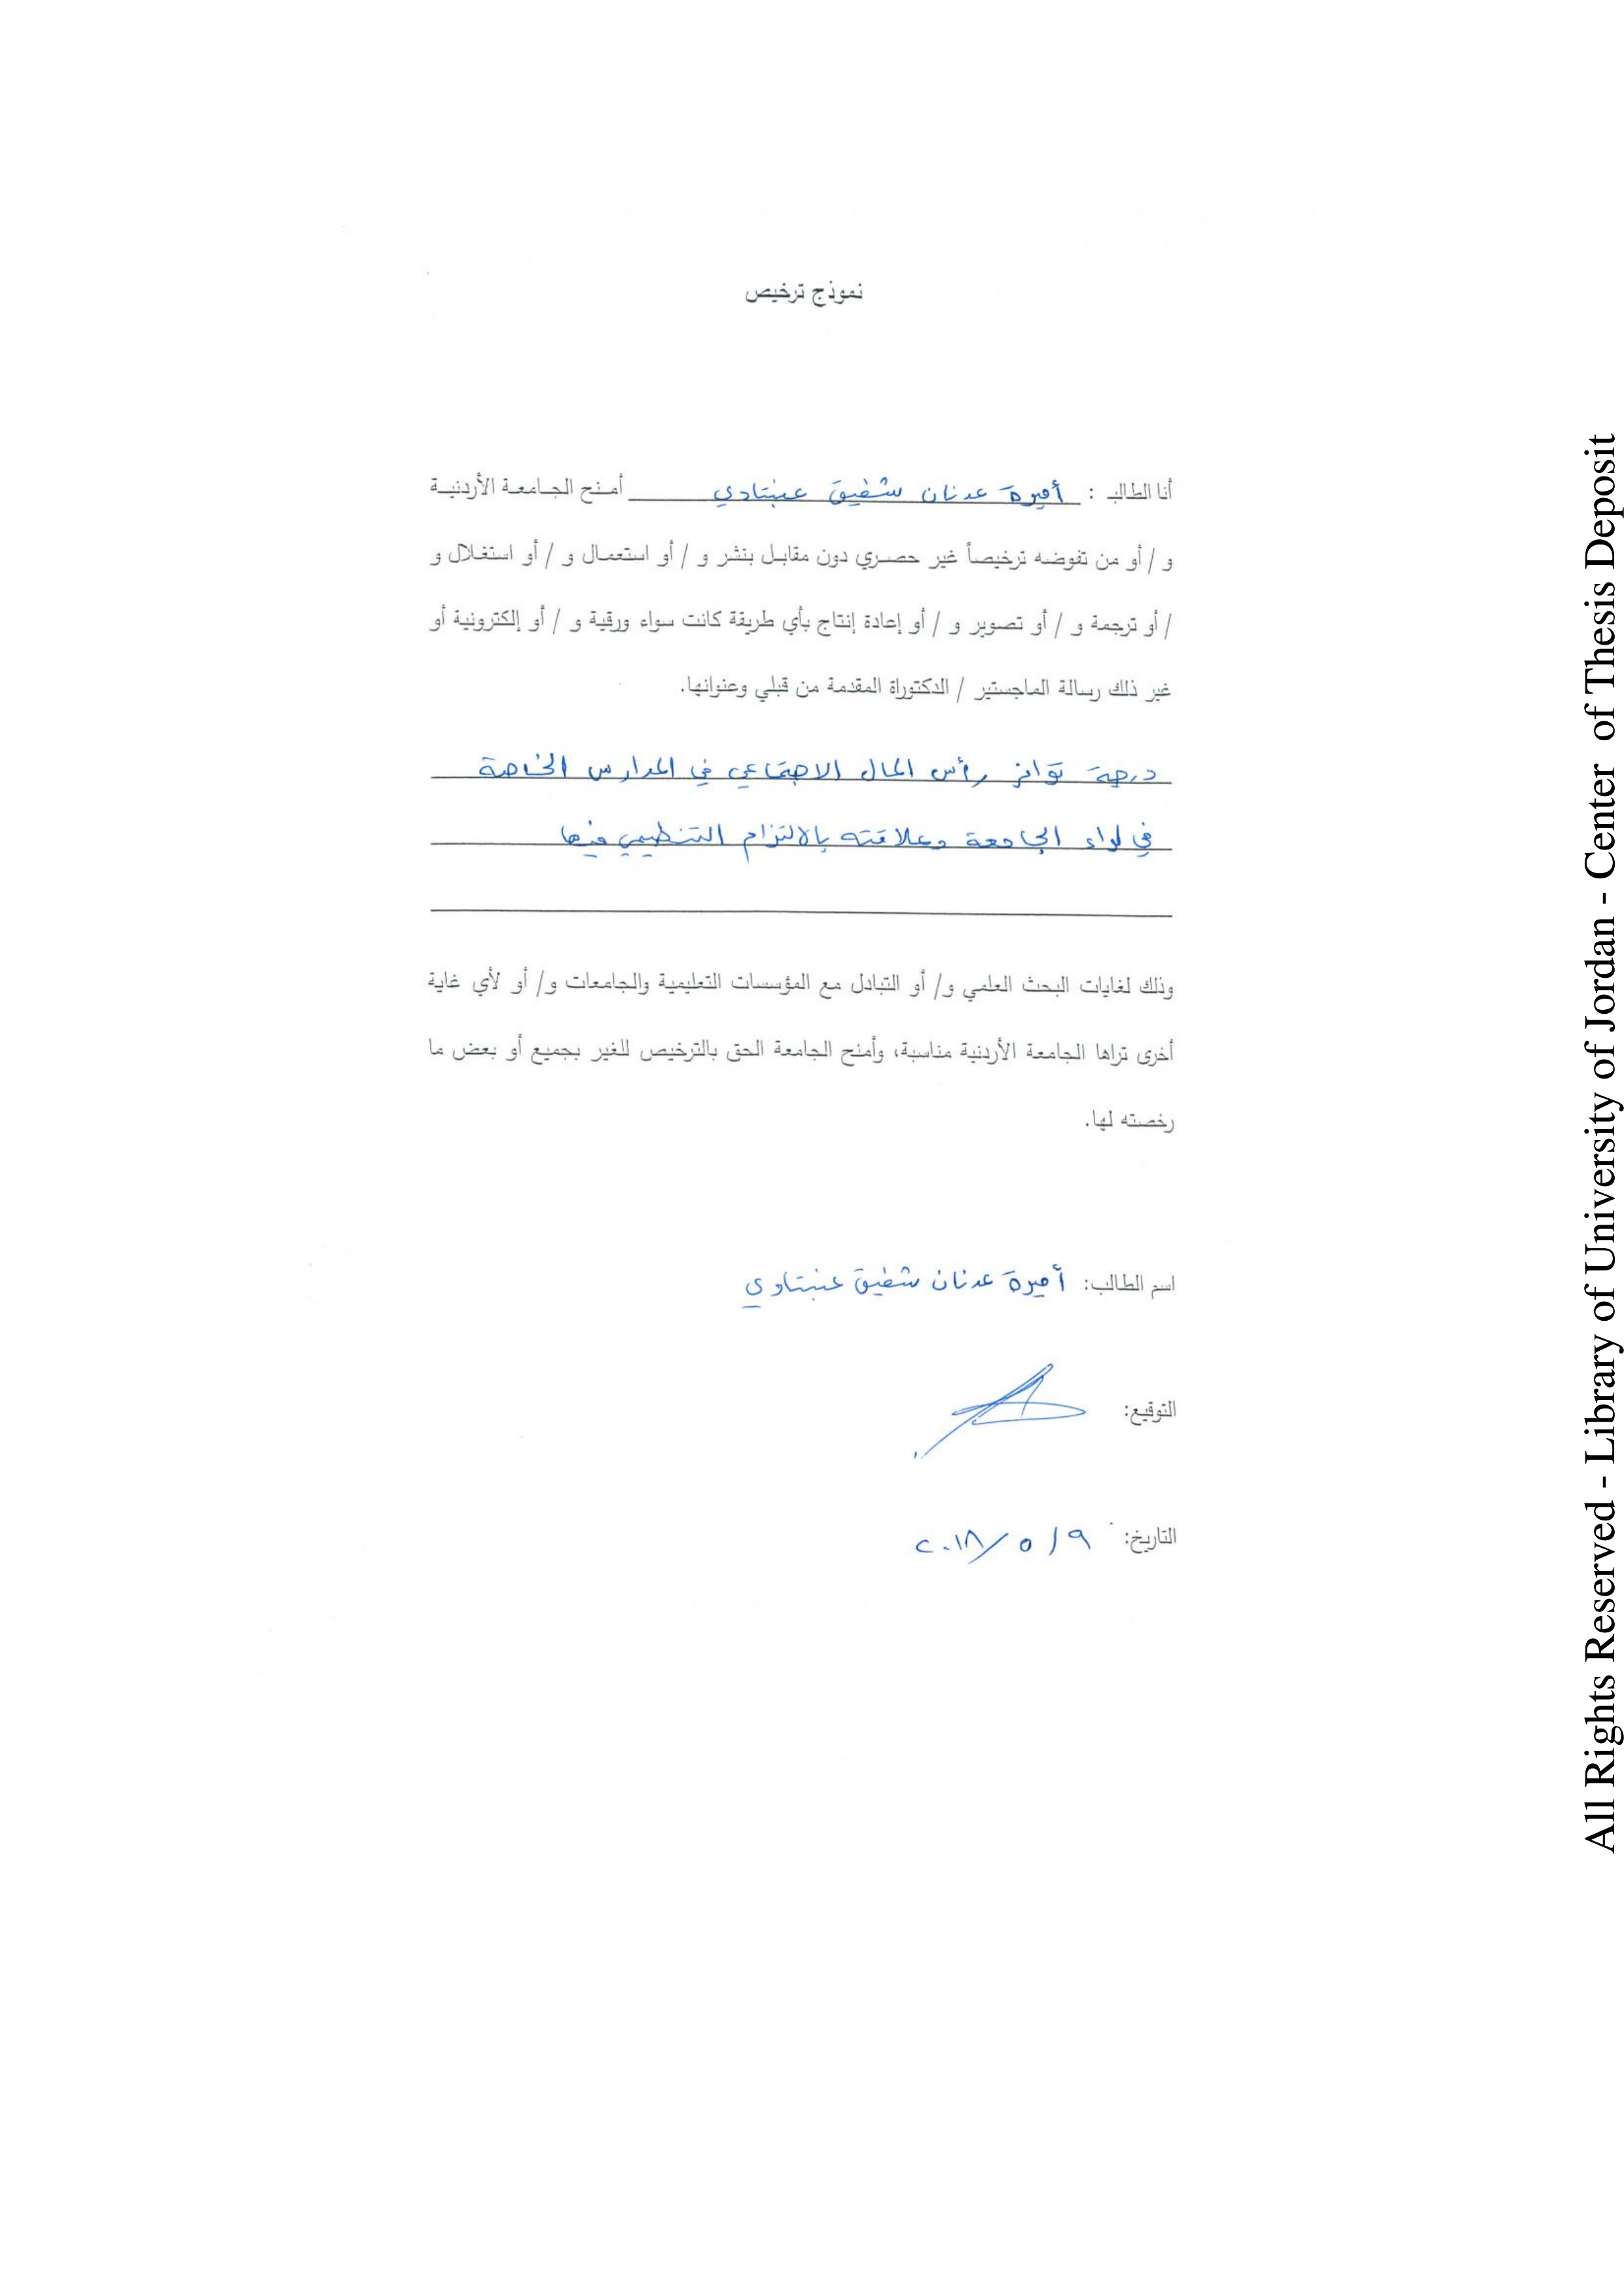 نموذج ترخيص
أنا الطالب : أميرة عدنان شفيق عنبتاوي أمنح الجامعة الأردنية
و / أو من تفوضه ترخيصاً غير حصري دون مقابل بنشر و / أو استعمال و / أو استغلال و
/ أو ترجمة و / أو تصوير و / أو إعادة إنتاج بأي طريقة كانت سواء ورقية و / أو إلكترونية أو
غير ذلك رسالة الماجستير / الدكتوراة المقدمة من قبلي وعنوانها.
درجة توافر رأس المال الاجتماعي في المدارس الخاصة
في لواء الجامعة وعلاقته بالالتزام التنظيمي فيها
وذلك لغايات البحث العلمي و/ أو التبادل مع المؤسسات التعليمية والجامعات و/ أو لأي غاية
أخرى تراها الجامعة الأردنية مناسبة، وأمنح الجامعة الحق بالترخيص للغير بجميع أو بعض ما
رخصته لها.
اسم الطالب: أميرة عدنان شفيق عنبتاوي
التوقيع:
التاريخ: ٩/ ٥ /٢٠١٨
All Rights Reserved - Library of University of Jordan - Center of Thesis Deposit